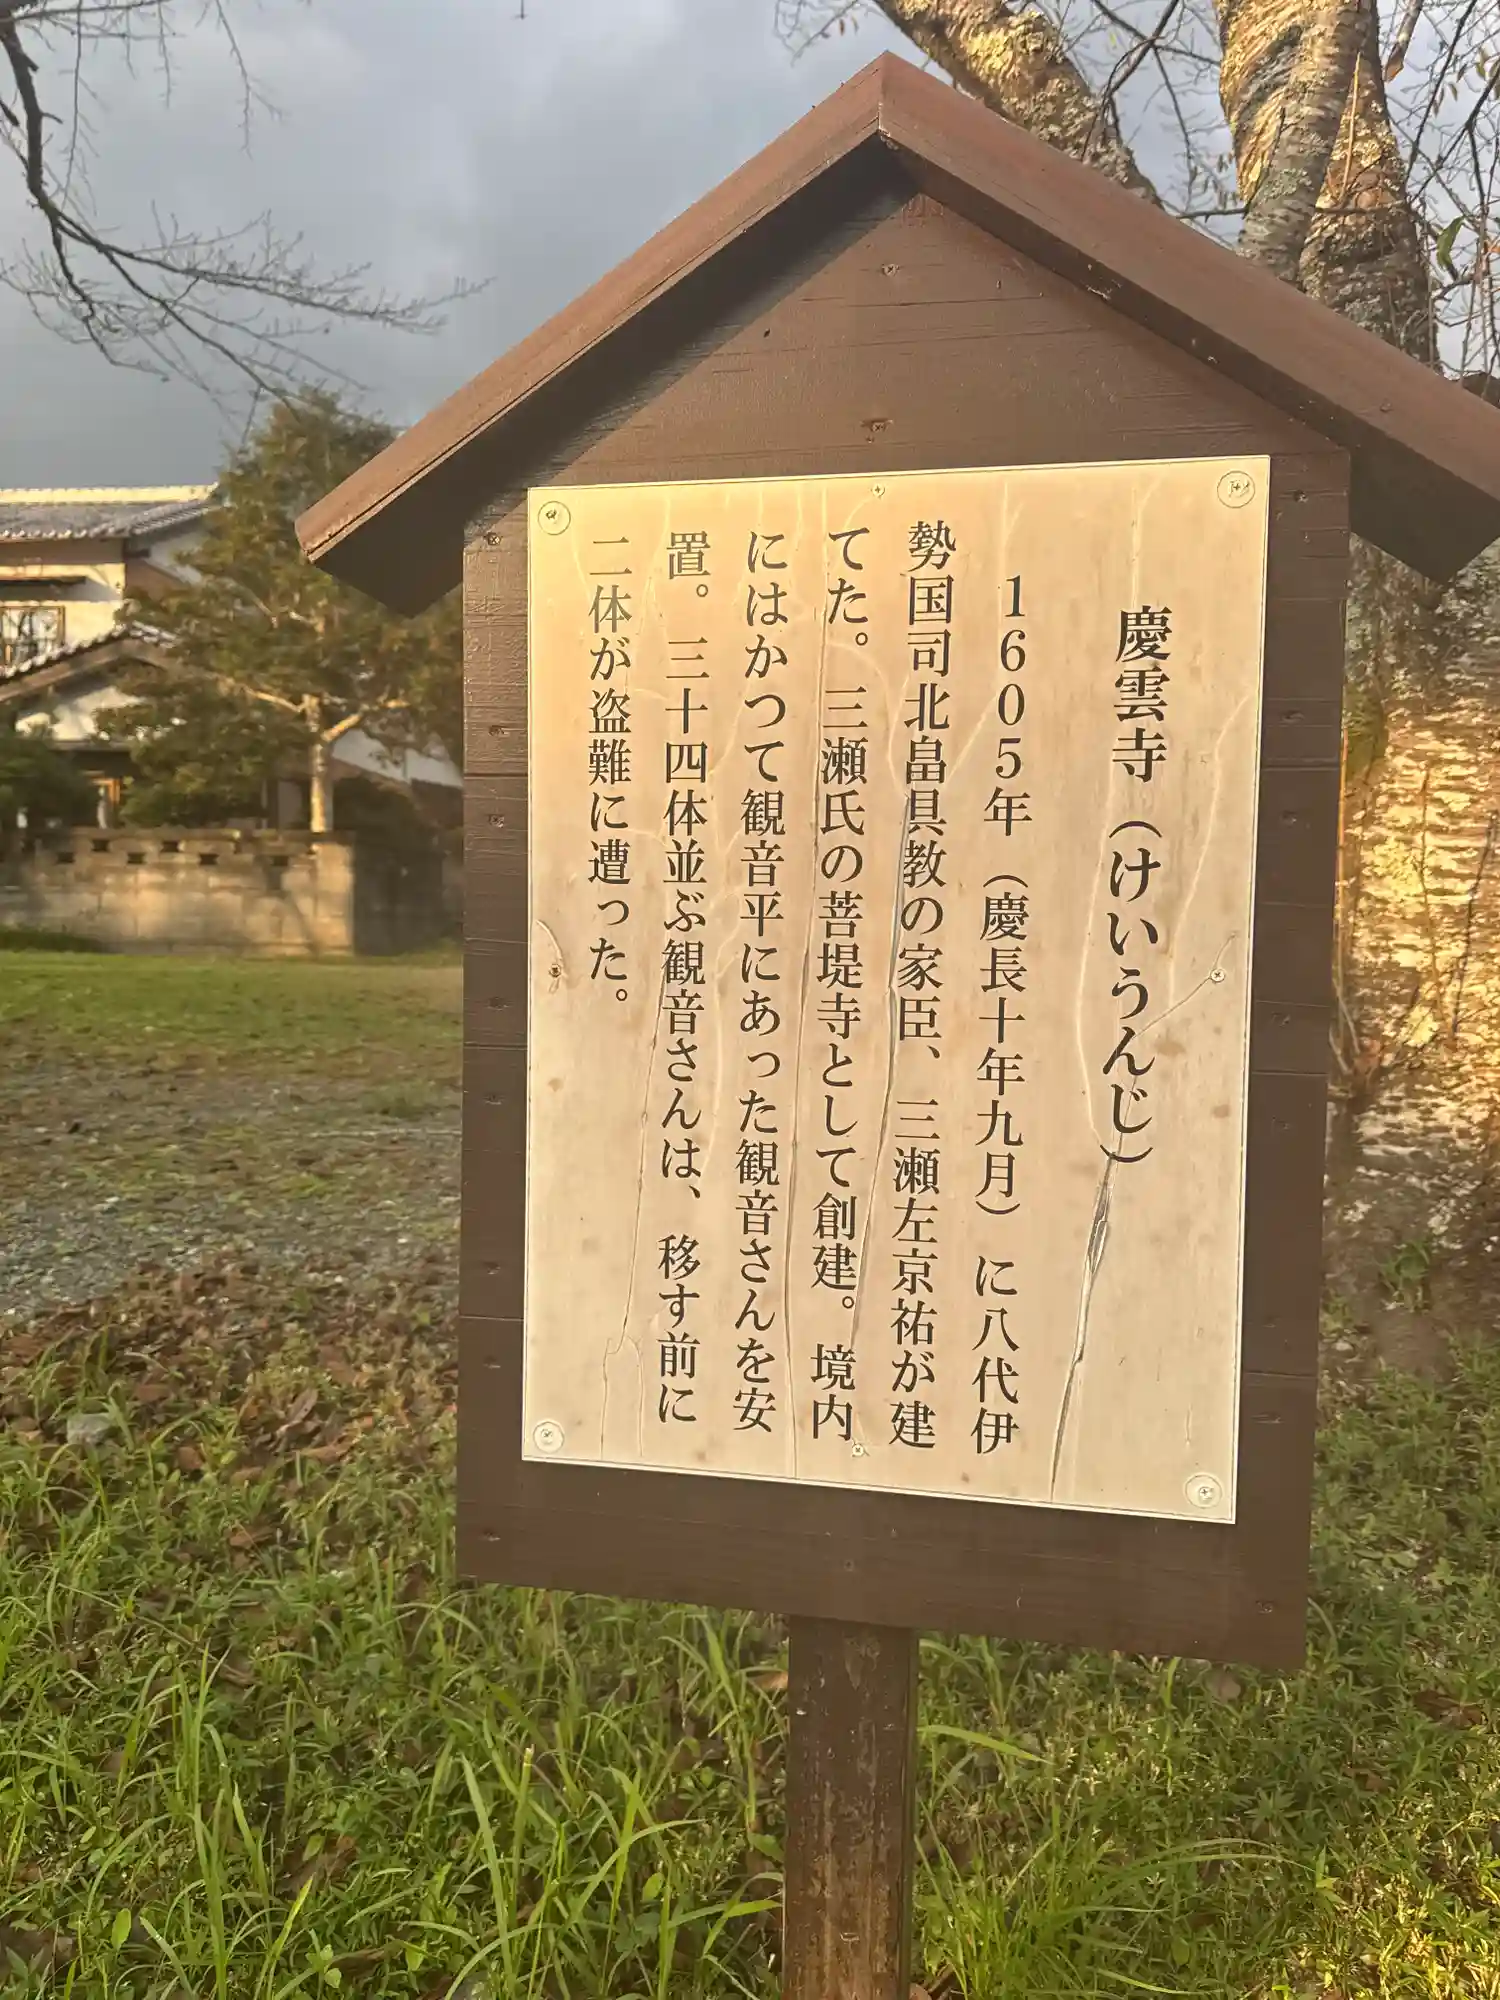 慶雲寺（けいうんじ）
1605年（慶長十年九月）に八代伊
勢国司北畠具教の家臣、三瀬左京祐が建
てた。三瀬氏の菩提寺として創建。境内
にはかつて観音平にあった観音さんを安
置。三十四体並ぶ観音さんは、移す前に
二体が盗難に遭った。